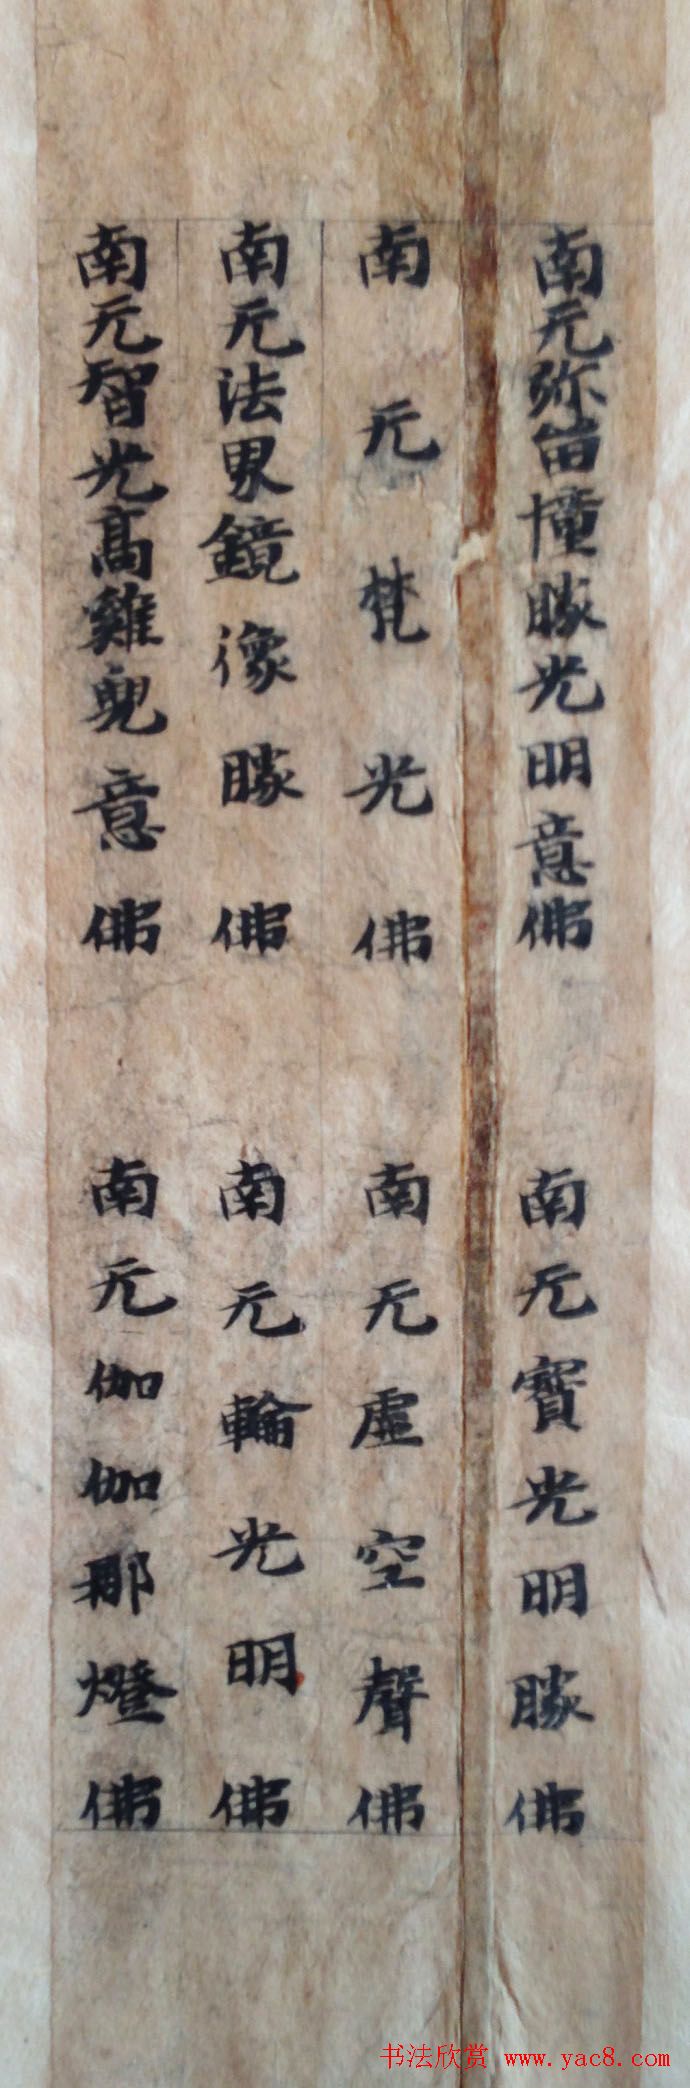 南无弥留幢勝光明意佛
南无寳光明勝佛
南无梵光佛
南无虚空聲佛
南无法界鏡像勝佛
南无輪光明佛
南无智光高雞兜意佛
南无伽伽那燈佛
书法欣赏 www.yac8.com